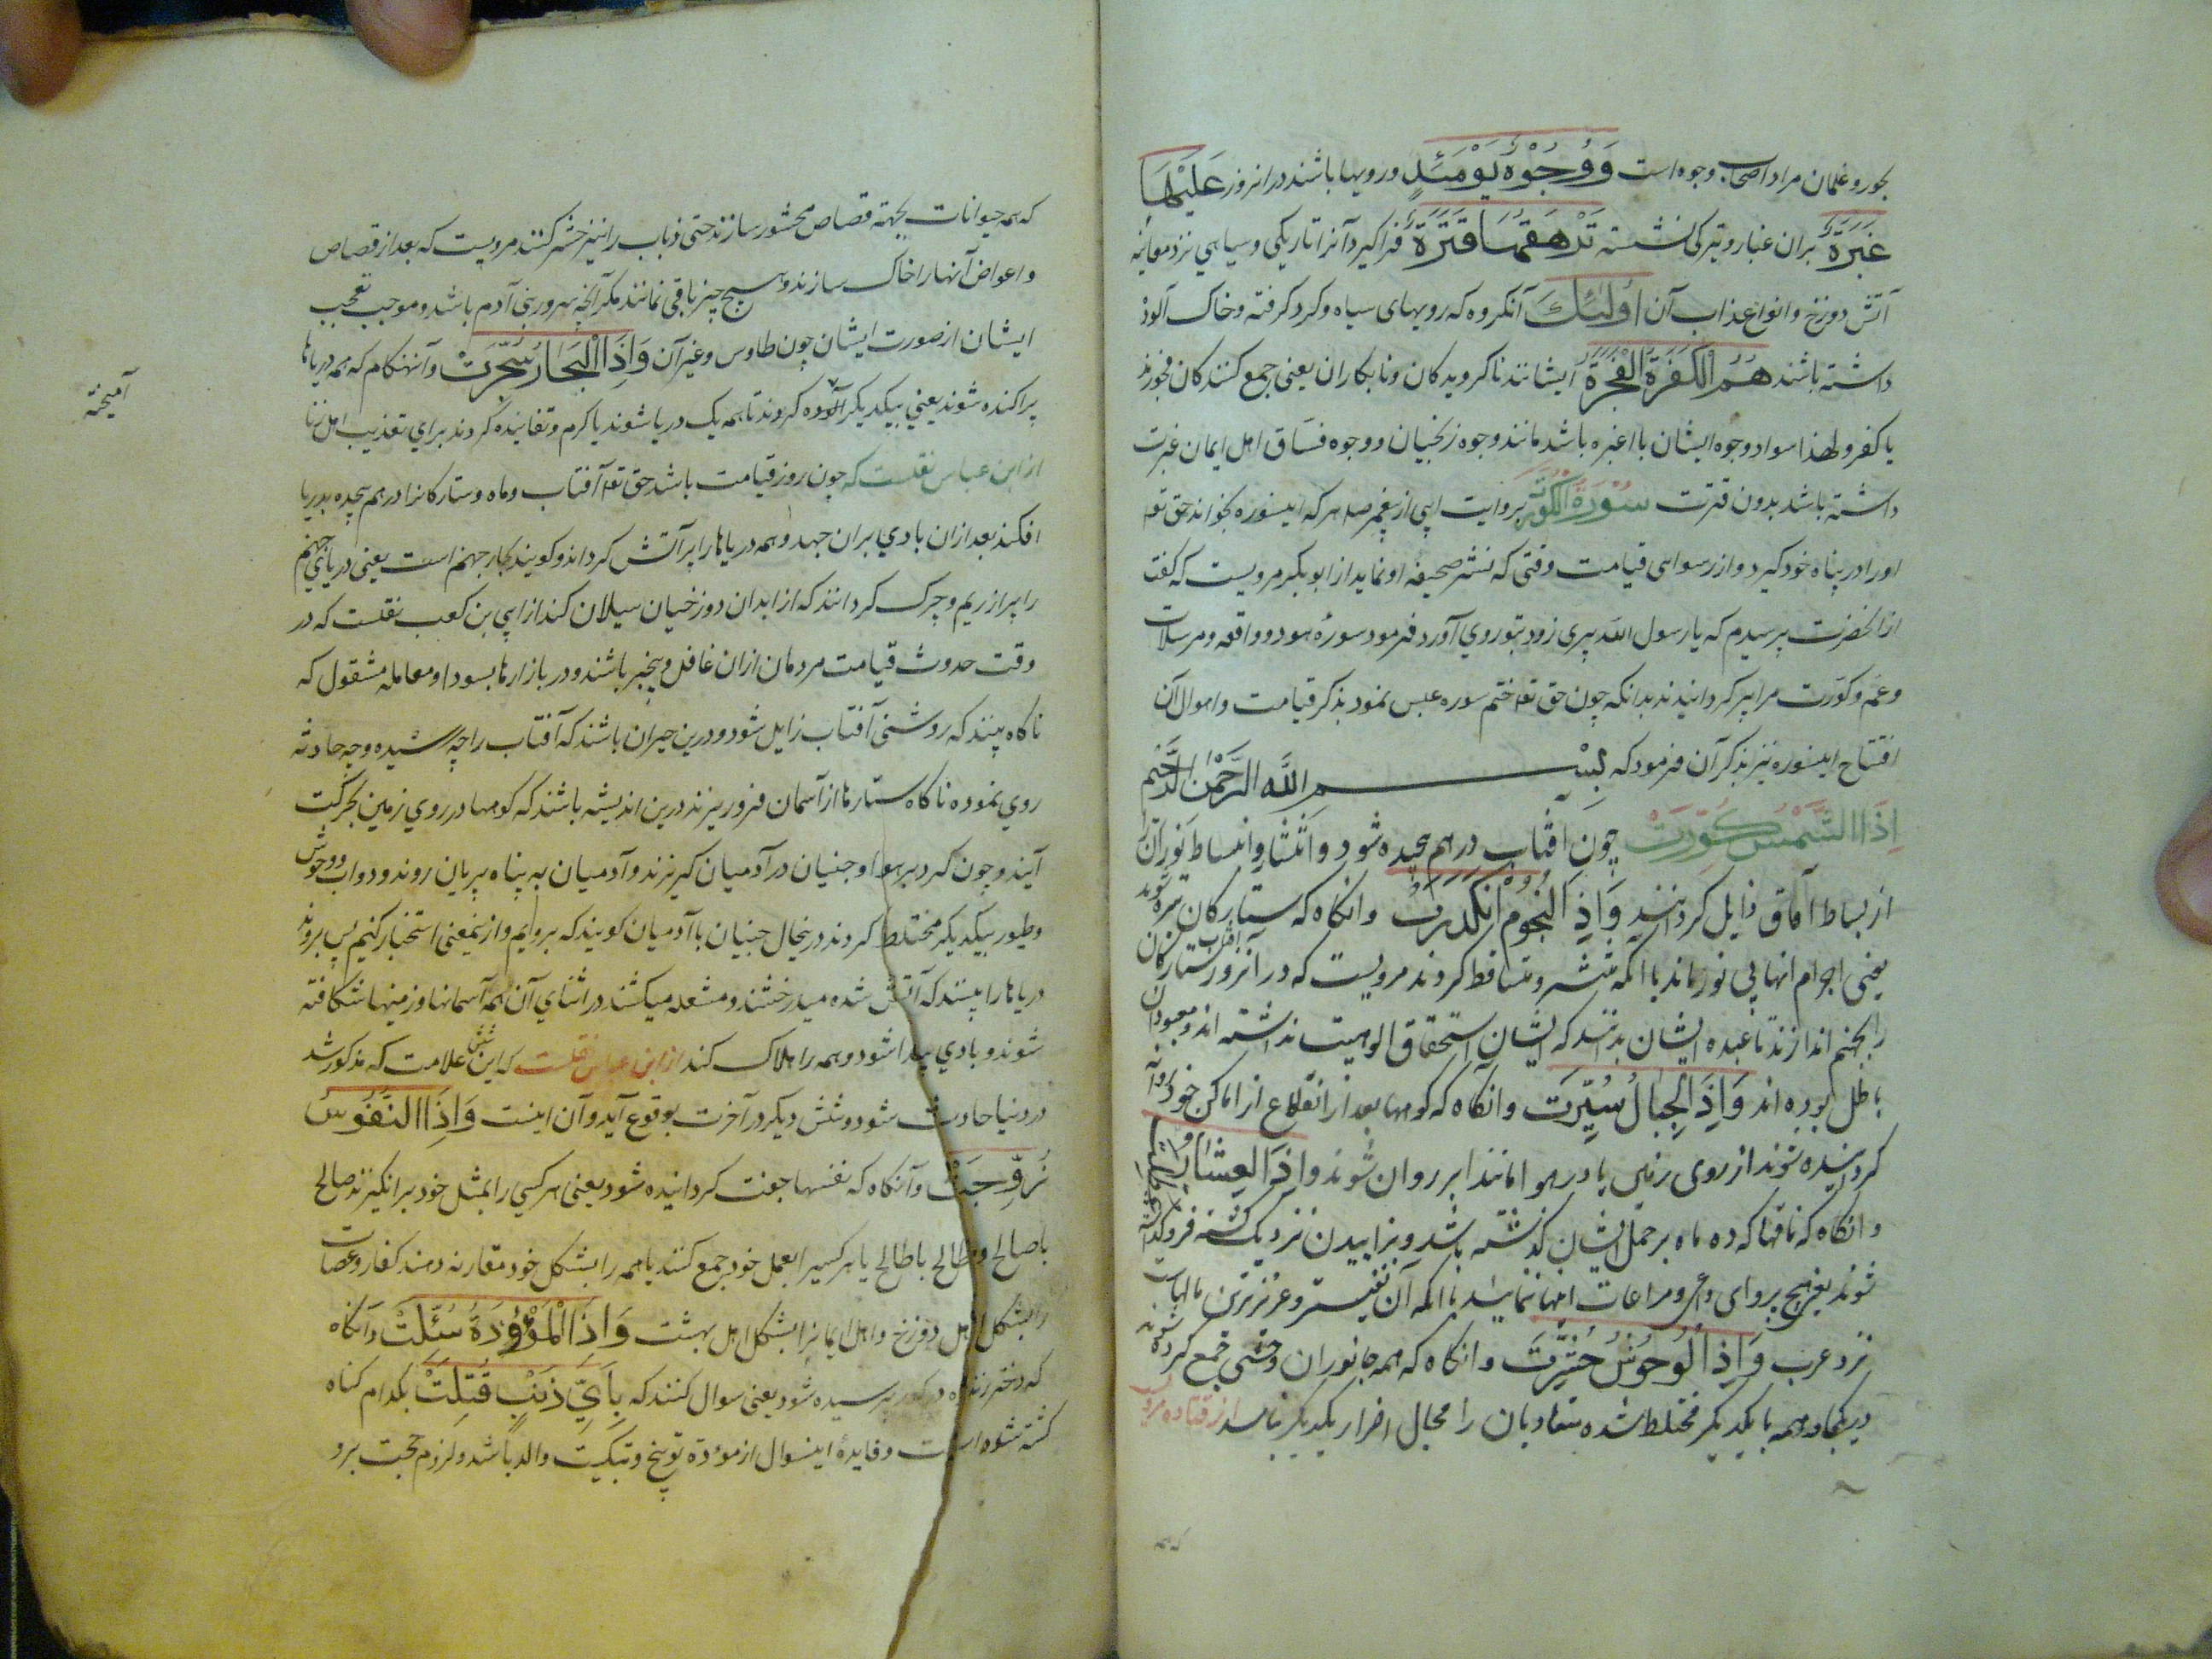 بحور و غلمان مراد اصحاب وجوه است وَوُجُوهٌ يَوْمَئِذٍ و رویها باشند در انروز عَلَيْهَا
غَبَرَةٌ بران غبار و تیرکی نشسته تَرْهَقُهَا قَتَرَةٌ فرا کیرد آنرا تاریکی و سیاهی نزد معاینه
آتش دوزخ و انواع عذاب آن اُولٰئِكَ آنکروه که رویهای سیاه و کرد کرفته و خاک آلود
داشته باشند هُمُ الْكَفَرَةُ الْفَجَرَةُ ایشانند ناکرویدکان و نابکاران یعنی جمع کنندکان فجورند
با کفر و لهذا سواد وجوه ایشان با اغبره باشد مانند وجوه زنجیان و وجوه فساق اهل ایمان غبرت
داشته باشد بدون قترت سُوْرَةُ الكُوِّرَتْ بروایت ابی از پیغمبر صلعم هر که اینسوره بخواند حق تعا
اورا در پناه خود کیرد و از رسوایی قیامت وقتی که نشر صحیفه او نماید از ابوبکر مرویست که کفت
از انحضرت پرسیدم که یا رسول الله پیری زود بتو روي آورد فرمود سورهٔ هود و واقعه و مرسلات
و عمّ و کوّرت مرا پیر کردانیدند بدانکه چون حق تعا ختم سوره عبس نمود بذکر قیامت و اهوال آن
افتتاح اینسوره نیز بذکر آن فرمود که بِسْمِ اللّٰهِ الرَّحْمٰنِ الرَّحِيْمِ
اِذَا الشَّمْسُ كُوِّرَتْ چون آفتاب در هم پیچیده شود و انتشار و انبساط نور آن را
از بساط آفاق زایل کردانند وَاِذَا النُّجُومُ انْكَدَرَتْ و انکاه که ستارکان تیره شوند
یعنی اجرام انها بی نور ماند یا انکه منتشر و متساقط کردند مرویست که در آنروز آفتاب و ستارکان
را بجهنم اندازند تا عبده ایشان بدانند که ایشان استحقاق الوهیت نداشته اند و معبودان
باطل بوده اند وَاِذَا الْجِبَالُ سُيِّرَتْ و انکاه که کوهها بعد از انقلاع از اماکن خود روان
کردانیده شوند از روی زمین یا در هوا مانند ابر روان شوند وَاِذَا الْعِشَارُ عُطِّلَتْ
و انکاه که ناقها که ده ماه بر حمل ایشان کذشته باشد و بزاییدن نزدیک کشته فرو کذاشته
شوند یعنی هیچ پروای و مراعات انها ننمایند با انکه آن نفیستر و عزیزترین مالهاست
نزد عرب وَاِذَا الْوُحُوْشُ حُشِرَتْ و انکاه که همه جانوران وحشی جمع کرده شوند
در یکجا و همه با یکدیکر مختلط شده متعادیان را مجال اضرار یکدیکر نباشد از قتاده مرویست
که همه
که همه حیوانات بجهة قصاص محشور سازند حتی ذباب را نیز حشر کنند مرویست که بعد از قصاص
و اعواض آنها را خاک سازند و هیچ چیز باقی نمانند مکر آنچه سرور بنی آدم باشد و موجب تعجب
ایشان از صورت ایشان چون طاوس و غیر آن وَاِذَا الْبِحَارُ سُجِّرَتْ و آنهنکام که همه دریاها
پراکنده شوند یعنی بیکدیکر آلوده کردند تا همه یک دریا شوند یا کرم و تفانیده کردند براي تعذیب اهل نار
آمیخته
از ابن عباس نقلست که چون روز قیامت باشد حق تعا آفتاب و ماه و ستارکانرا در هم پیچیده بدریا
افکند بعد ازان بادي بران جهد و همه دریاها را پر آتش کرداند و کویند بحار جهنم است یعنی دریاي جهنم
را پر از ریم و چرک کردانند که از ابدان دوزخیان سیلان کند از ابي بن کعب نقلست که در
وقت حدوث قیامت مردمان ازان غافل و بیخبر باشند و در بازارها بسودا و معامله مشغول که
ناکاه بینند که روشنی آفتاب زایل شود و درین حیران باشند که آفتاب را چه رسیده و چه حادثه
روي نموده ناکاه ستارها از آسمان فرو ریزند درین اندیشه باشند که کوهها در روي زمین بحرکت
آیند و چون کرد بر هوا و جنیان در آدمیان کریزند و آدمیان به پناه پریان روند و دواب و وحوش
و طیور بیکدیکر مختلط کردند درینحال جنیان با آدمیان کویند که برویم و ازینمعنی استخبار کنیم پس بروند
دریاها را بینند که آتش شده میدرخشند و مشعله میکشند در اثنای آن همه آسمانها و زمینها شکافته
شوند و بادي پیدا شود و همه را هلاک کند از ابن عباس نقلست که این شش علامت که مذکور شد
در دنیا حادث شود و شش دیکر در آخرت بوقوع آید و آن اینست وَاِذَا النُّفُوسُ
زُوِّجَتْ و آنکاه که نفسها جفت کردانیده شود یعنی هر کسي را بمثل خود برانکیزند صالح
با صالح و طالح با طالح یا هر کسیرا بعمل خود جمع کنند یا همه را بشکل خود مقارنه دهند کفار و عصات
را بشکل اهل دوزخ و اهل ایمانرا بشکل اهل بهشت وَاِذَا الْمَوْؤُدَةُ سُئِلَتْ و آنکاه
که دختر زنده در کور پرسیده شود یعنی سوال کنند که بِاَيِّ ذَنْبٍ قُتِلَتْ بکدام کناه
کشته شوه است و فایدهٔ اینسوال از موؤدة توبیخ و تبکیت والد باشد و لزوم حجت برو